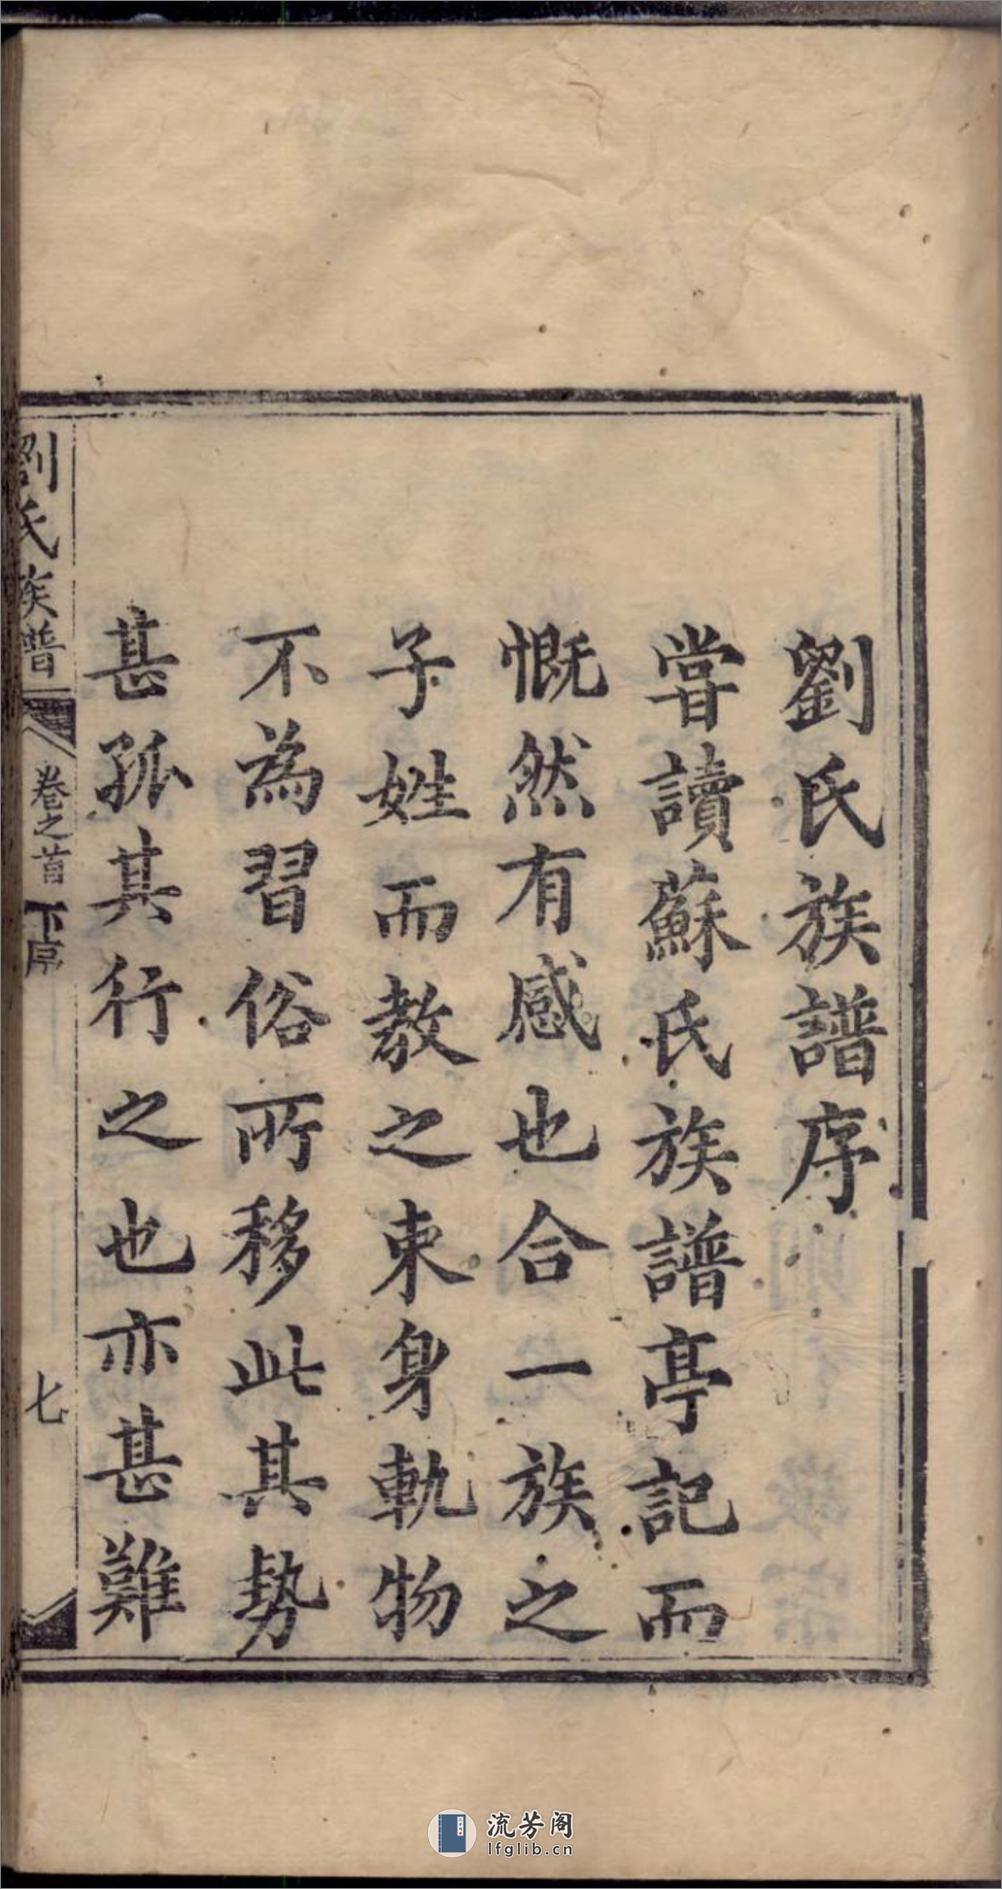 劉氏族譜序
甞讀蘇氏族譜亭記而
慨然有感也合一族之
子姓而教之束身軌物
不為習俗所移此其勢
甚孤其行之也亦甚難
劉氏族譜
卷之首
下序
七
流芳阁
lfglib.cn